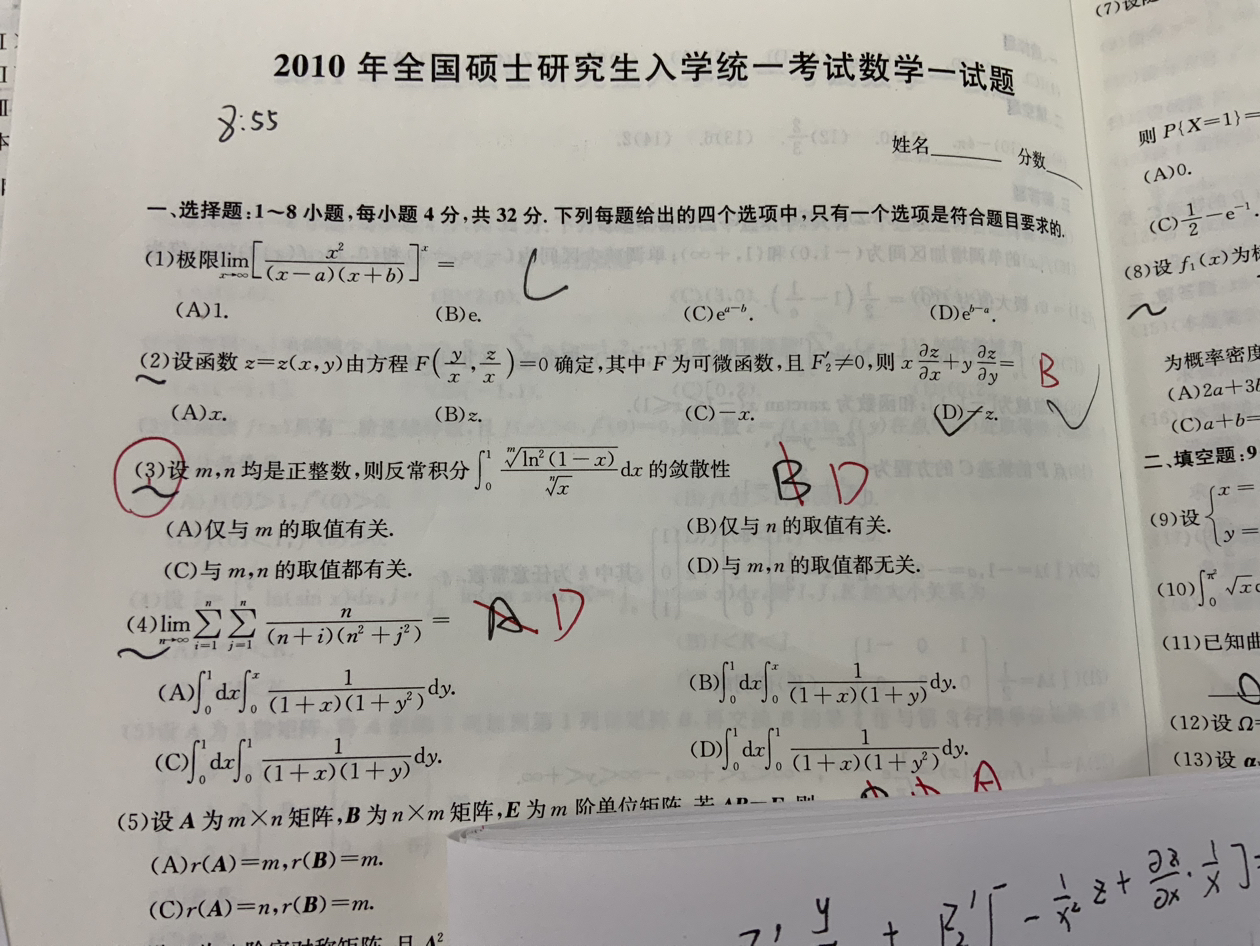 2010 年全国硕士研究生入学统一考试数学一试题
8:55
姓名______ 分数
一、选择题:1～8 小题,每小题 4 分,共 32 分. 下列每题给出的四个选项中,只有一个选项是符合题目要求的.
(1)极限lim_{x→∞}[x²/((x-a)(x+b))]^x = C
(A)1. (B)e. (C)e^{a-b}. (D)e^{b-a}.
(2)设函数 z=z(x,y)由方程 F(y/x, z/x)=0 确定,其中 F 为可微函数,且 F′₂≠0,则 x ∂z/∂x + y ∂z/∂y = B
(A)x. (B)z. (C)-x. (D)-z.
(3)设 m,n 均是正整数,则反常积分 ∫₀¹ \sqrt[m]{ln²(1-x)}/\sqrt[n]{x} dx 的敛散性 B D
(A)仅与 m 的取值有关. (B)仅与 n 的取值有关.
(C)与 m,n 的取值都有关. (D)与 m,n 的取值都无关.
(4)lim_{n→∞} ∑_{i=1}^{n} ∑_{j=1}^{n} n/((n+i)(n²+j²)) = A D
(A)∫₀¹dx∫₀ˣ 1/((1+x)(1+y²)) dy. (B)∫₀¹dx∫₀ˣ 1/((1+x)(1+y)) dy.
(C)∫₀¹dx∫₀¹ 1/((1+x)(1+y)) dy. (D)∫₀¹dx∫₀¹ 1/((1+x)(1+y²)) dy.
(5)设 A 为 m×n 矩阵,B 为 n×m 矩阵,E 为 m 阶单位矩阵,若 AB=E,则 A
(A)r(A)=m,r(B)=m.
(C)r(A)=n,r(B)=m.
则 P{X=1}=
(A)0.
(C)1/2-e^{-1}.
(8)设 f₁(x)为标
为概率密度
(A)2a+3b
(C)a+b=
二、填空题:9
(9)设 {x=
y=
(10)∫₀^{π²} √x
(11)已知曲
(12)设 Ω=
(13)设 α
-1/x² z + ∂z/∂x · 1/x ]=